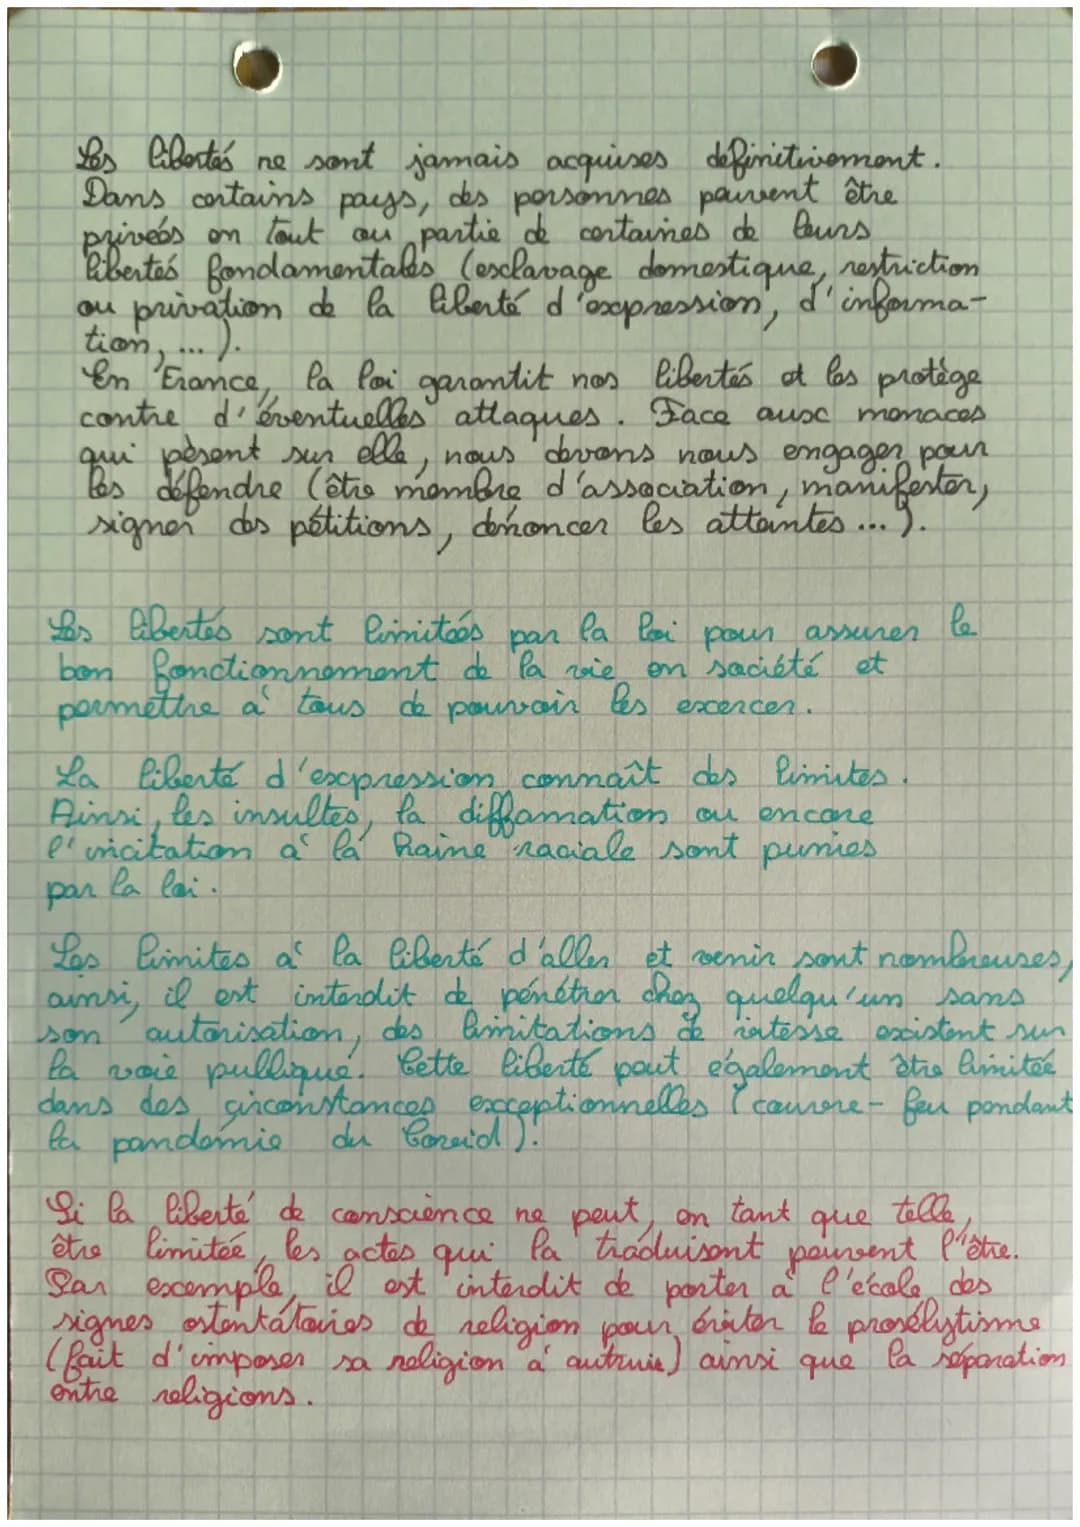 Les libertés ne sont jamais acquises définitivement.
Dans certains pays, des personnes peuvent être
privées en tout ou partie de certaines de leurs
libertés fondamentales (esclavage domestique, restriction
ou privation de la liberté d'expression, d'informa-
tion, ... ).
En France, la loi garantit nos libertés et les protège
contre d'éventuelles attaques. Face aux menaces
qui pèsent sur elle, nous devons nous engager pour
les défendre (être membre d'association, manifester,
signer des pétitions, dénoncer les atteintes ... ).
Les libertés sont limitées par la loi pour assurer le
bon fonctionnement de la vie en société et
permettre à tous de pouvoir les excercer.
La liberté d'expression connaît des limites.
Ainsi, les insultes, la diffamation ou encore
l'incitation à la haine raciale sont punies
par la loi.
Les limites à la liberté d'aller et venir sont nombreuses,
ainsi, il est interdit de pénétrer chez quelqu'un sans
son autorisation, des limitations de vitesse existent sur
la voie publique. Cette liberté peut également être limitée
dans des circonstances exceptionnelles (couvre-feu pendant
la pandémie du Covid).
Si la liberté de conscience ne peut, en tant que telle,
être limitée, les actes qui la traduisent peuvent l'être.
Par exemple, il est interdit de porter à l'école des
signes ostentatoires de religion pour éviter le prosélytisme
(fait d'imposer sa religion à autruie) ainsi que la séparation
entre religions.